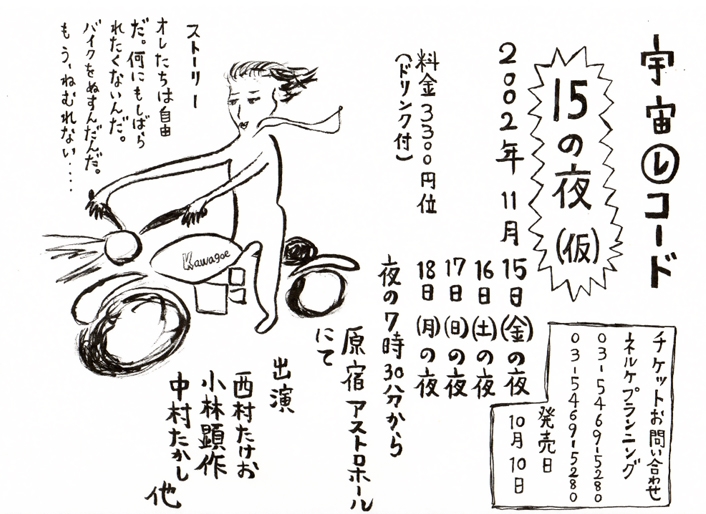 宇宙レコード
15の夜(仮)
2002年11月
15日(金)の夜
16日(土)の夜
17日(日)の夜
18日(月)の夜
夜の7時30分から
料金3300円位
(ドリンク付)
原宿アストロホール
にて
出演
西村たけお
小林顕作
中村たかし
他
チケットお問い合わせ
ネルケプランニング
03-5469-5280
03-5469-5280
発売日
10月10日
ストーリー
オレたちは自由
だ。何にもしばら
れたくないんだ。
バイクをぬすんだんだ。
もう、ねむれない....
Kawagoe